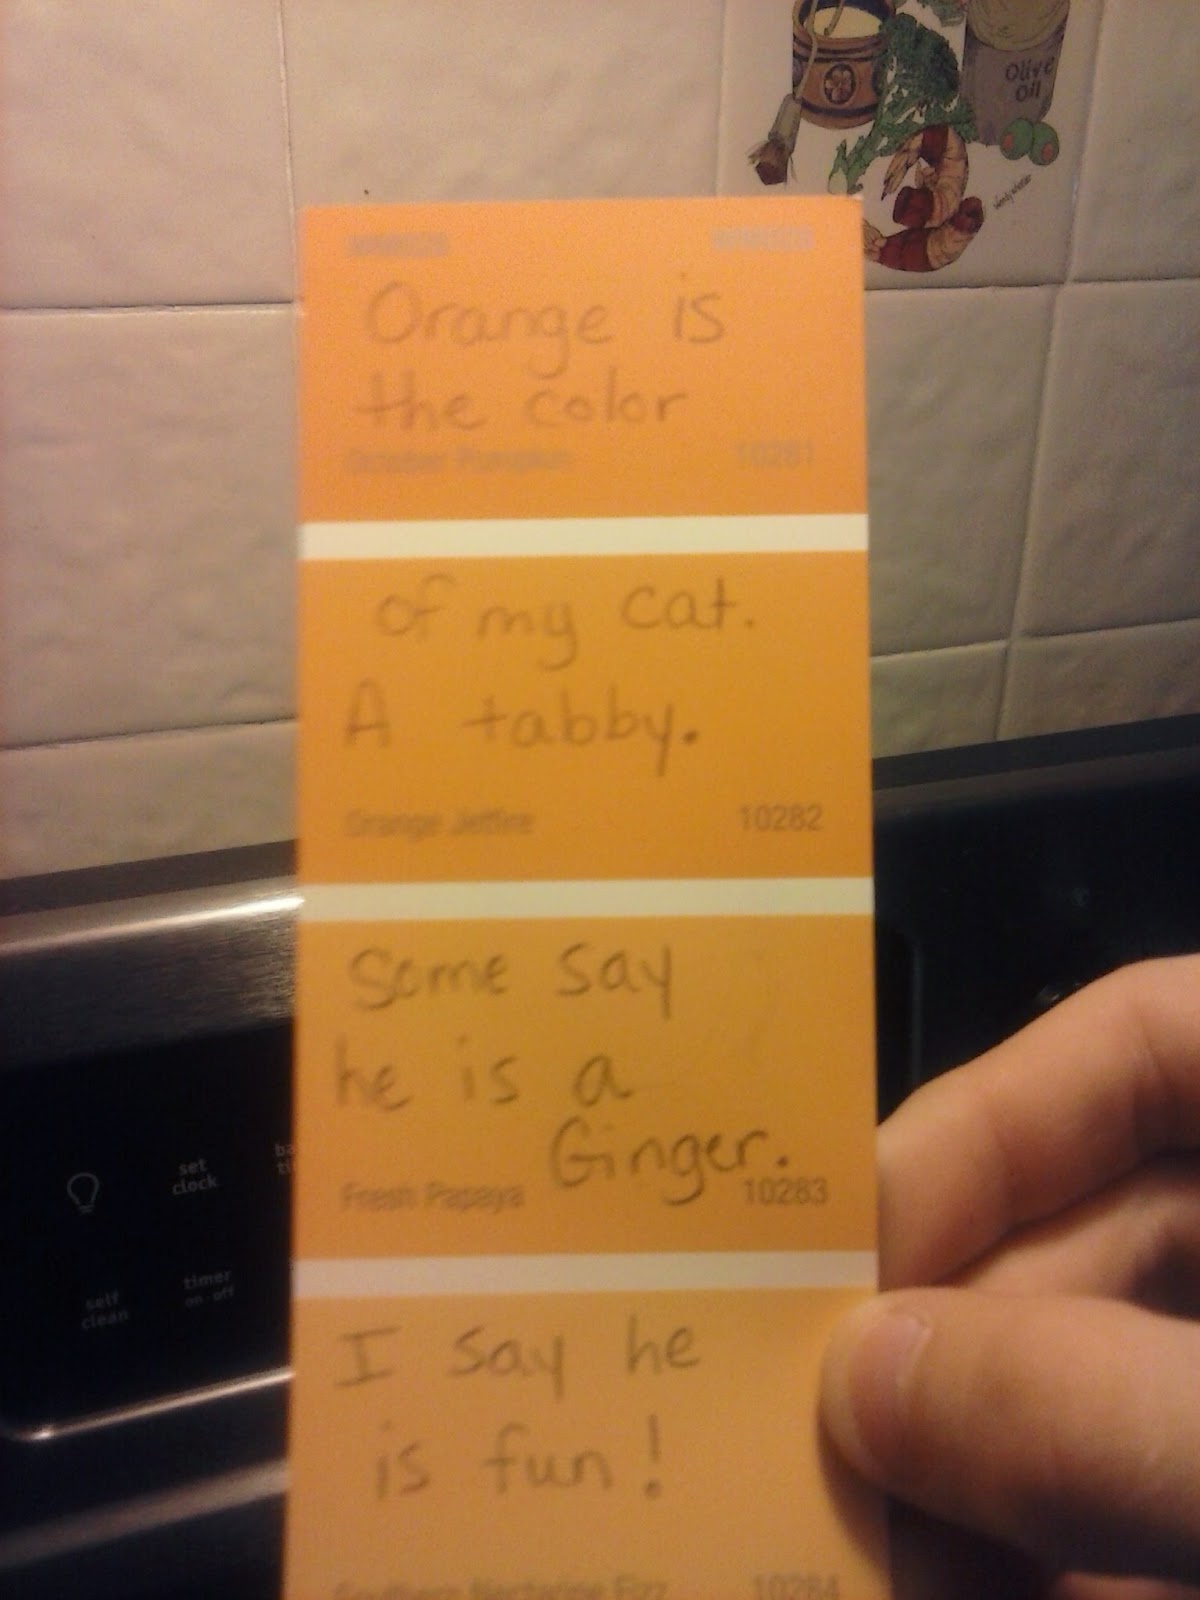 Olive
Oil
Orange is
the color
October Pumpkin 10281
of my cat.
A tabby.
Orange Jetfire 10282
Some say
he is a
Ginger.
Fresh Papaya 10283
I say he
is fun!
Southern Nectarine Fizz 10284
set
clock
self
clean
timer
on off